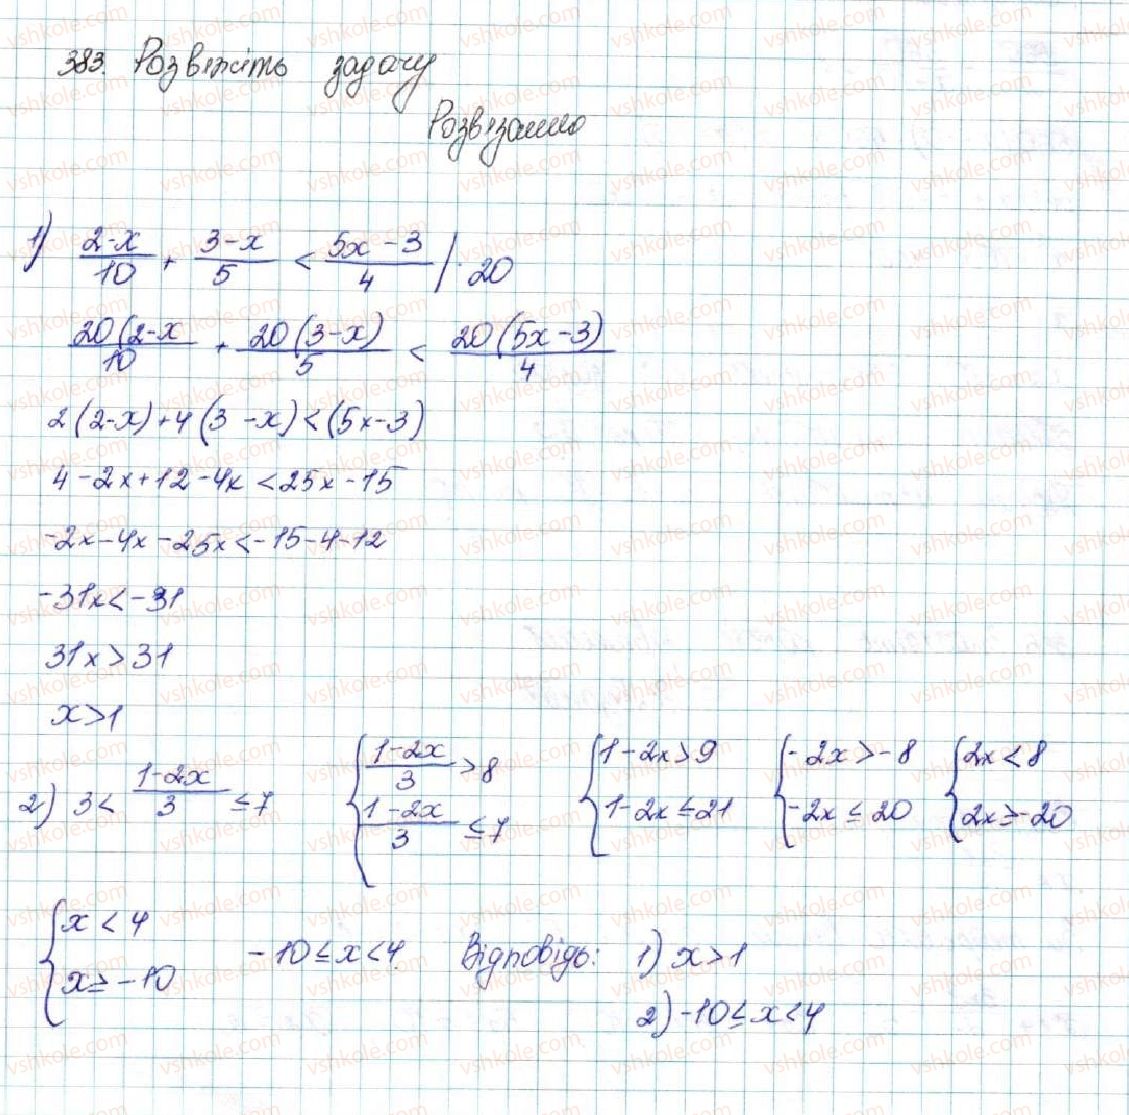 383. Розв'яжіть задачу
Розв'язання
1) (2-x)/10 + (3-x)/5 < (5x-3)/4 | · 20
20(2-x/10 + 20(3-x)/5 < 20(5x-3)/4
2(2-x)+4(3-x)<(5x-3)
4-2x+12-4x<25x-15
-2x-4x-25x<-15-4-12
-31x<-31
31x>31
x>1
2) 3< (1-2x)/3 ≤7 { (1-2x)/3 >8 ; (1-2x)/3 ≤7 { 1-2x>9 ; 1-2x≤21 { -2x>-8 ; -2x≤20 { 2x<8 ; 2x≥-20
{ x<4 ; x≥-10 -10≤x<4 Відповідь: 1) x>1
2) -10≤x<4